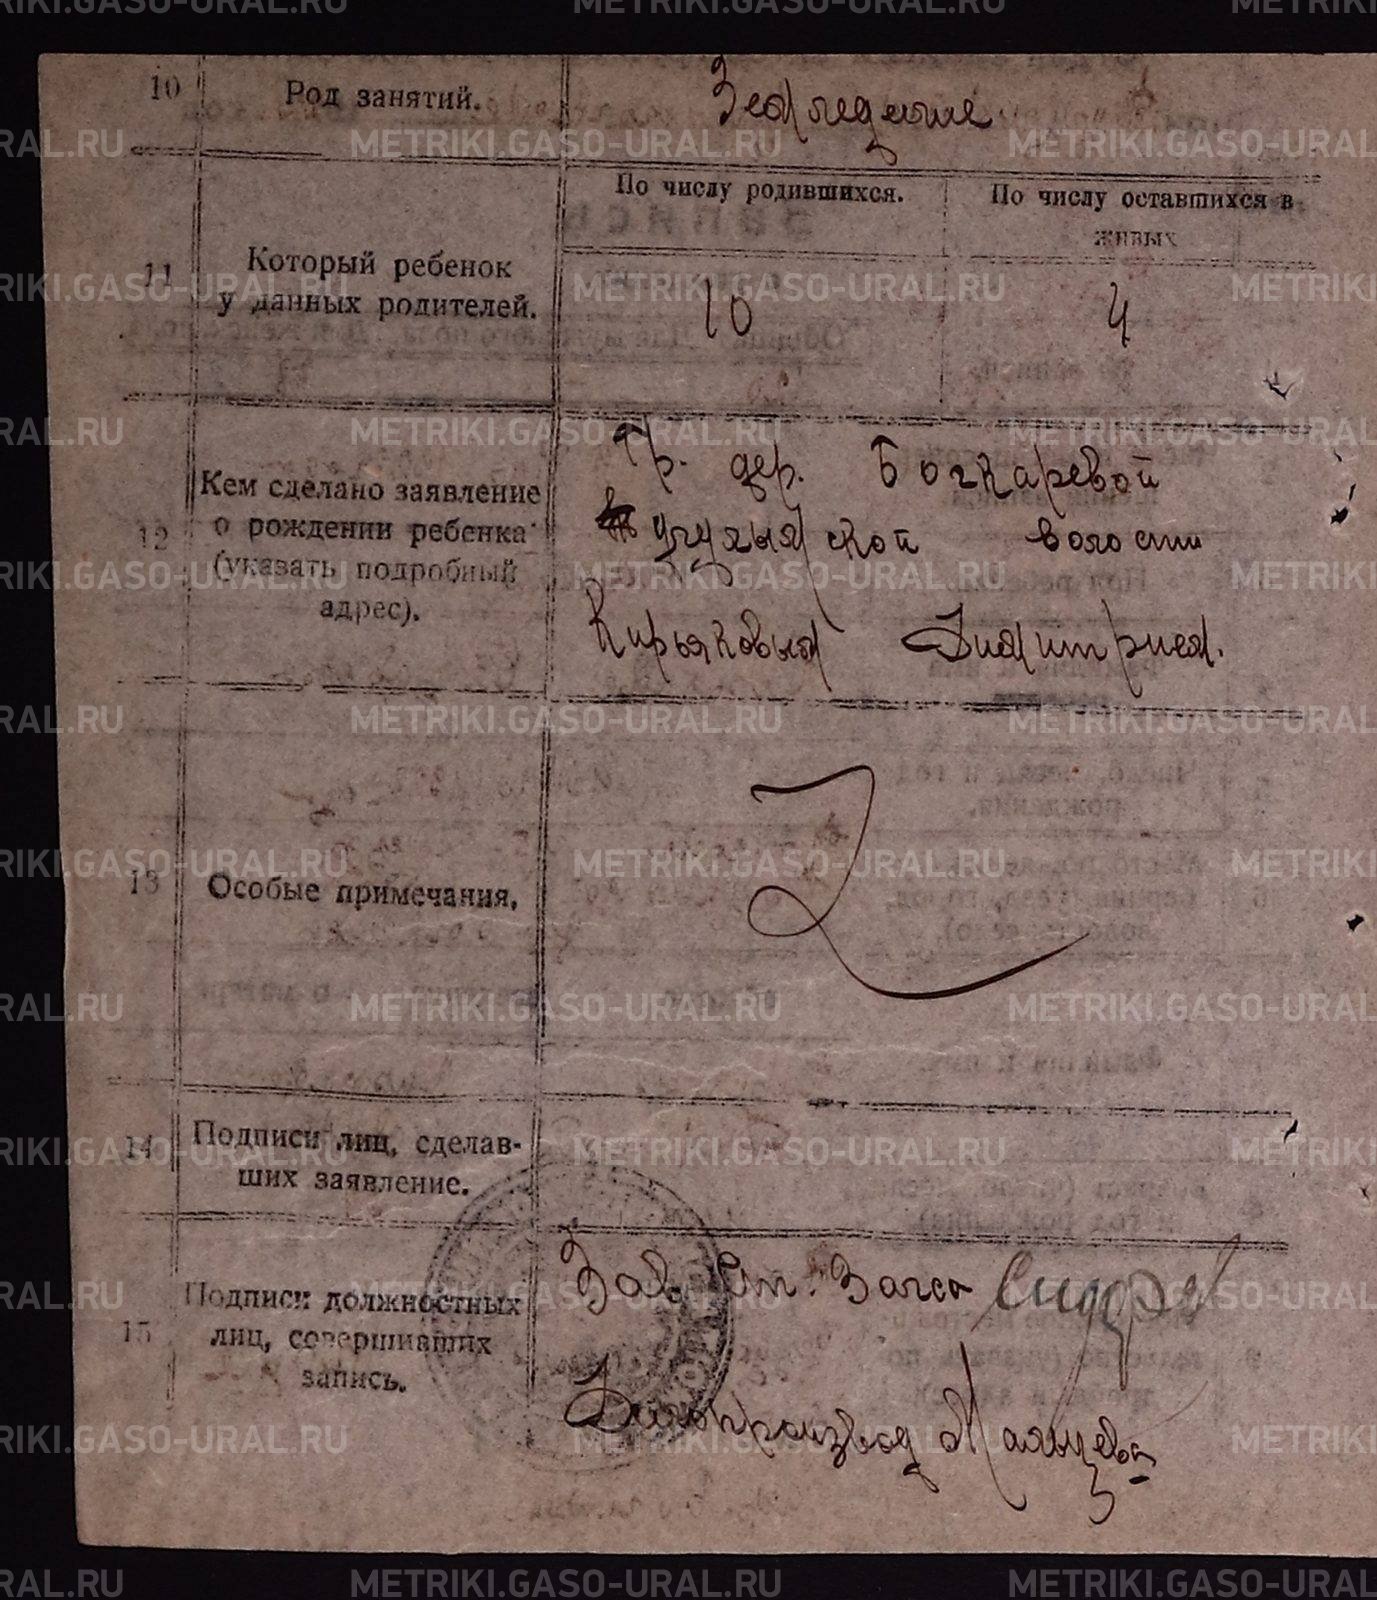 METRIKI.GASO-URAL.RU
10 Род занятий. Земледелие
11 Который ребенок у данных родителей.
По числу родившихся. По числу оставшихся в живых
10 4
12 Кем сделано заявление о рождении ребенка (указать подробный адрес).
Гр. дер. Бочкаревой
волости
Кирьяковым Димитрием.
13 Особые примечания.
14 Подписи лиц, сделавших заявление.
15 Подписи должностных лиц, совершивших запись.
Зав. Ст. Загса
Делопроизвод